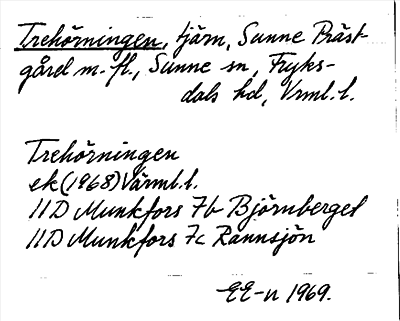 Trehörningen, tjärn, Sunne Präst-
gård m. fl., Sunne sn, Fryks-
dals hd, Vrml. l.
Trehörningen
ek (1968) Värml. l.
11D Munkfors 7b Björnberget
11D Munkfors 7c Rannsjön
EE-n 1969.